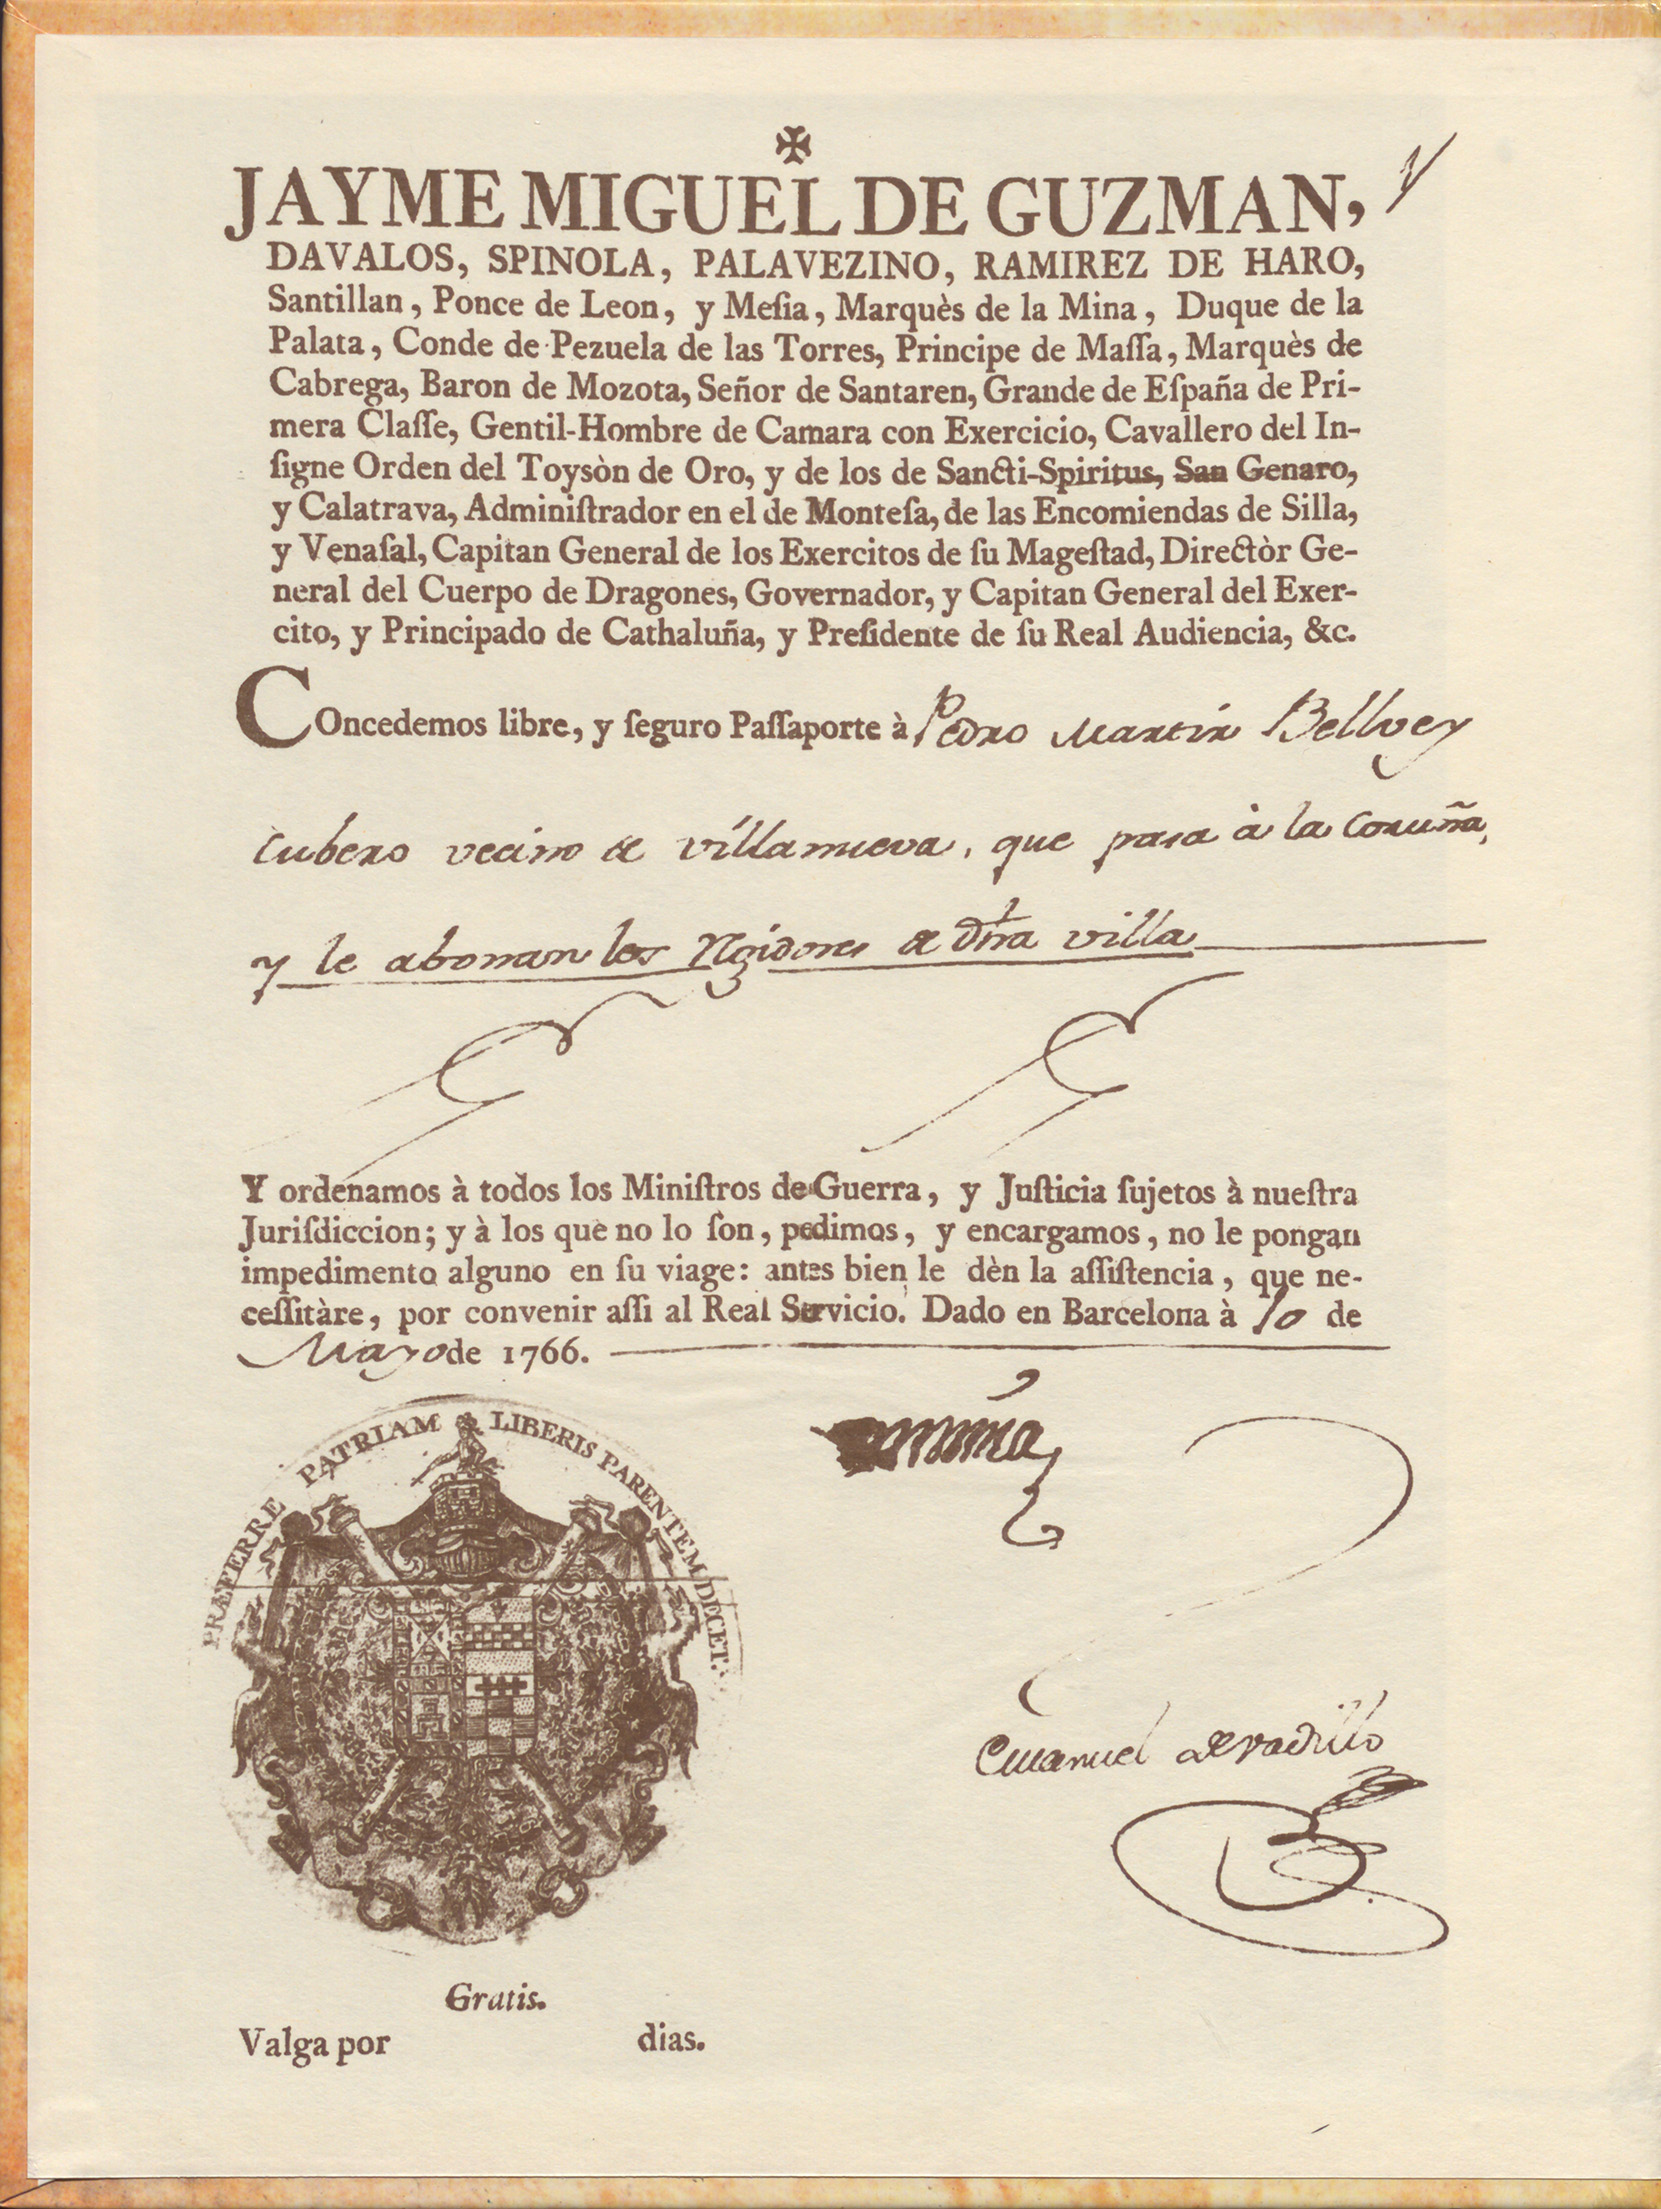 ✠
JAYME MIGUEL DE GUZMAN,
DAVALOS, SPINOLA, PALAVEZINO, RAMIREZ DE HARO,
Santillan, Ponce de Leon, y Meſia, Marquès de la Mina, Duque de la
Palata, Conde de Pezuela de las Torres, Principe de Maſſa, Marquès de
Cabrega, Baron de Mozota, Señor de Santaren, Grande de Eſpaña de Pri-
mera Claſſe, Gentil-Hombre de Camara con Exercicio, Cavallero del In-
ſigne Orden del Toysòn de Oro, y de los de Sancti-Spiritus, San Genaro,
y Calatrava, Adminiſtrador en el de Monteſa, de las Encomiendas de Silla,
y Venaſal, Capitan General de los Exercitos de ſu Mageſtad, Directòr Ge-
neral del Cuerpo de Dragones, Governador, y Capitan General del Exer-
cito, y Principado de Cathaluña, y Preſidente de ſu Real Audiencia, &c.
COncedemos libre, y ſeguro Paſſaporte à Pedro Martin Bellvey
Cubero vecino de Villanueva, que pasa à la Coruña,
y le abonan los Regidores de dha villa
Y ordenamos à todos los Miniſtros de Guerra, y Juſticia ſujetos à nueſtra
Juriſdiccion; y à los que no lo ſon, pedimos, y encargamos, no le pongan
impedimento alguno en ſu viage: antes bien le dèn la aſſiſtencia, que ne-
ceſſitàre, por convenir aſſi al Real Servicio. Dado en Barcelona à 10 de
Mayo de 1766.
PRÆFERRE PATRIAM LIBERIS PARENTEM DECET.
Emanuel de Vadillo
Gratis.
Valga por dias.